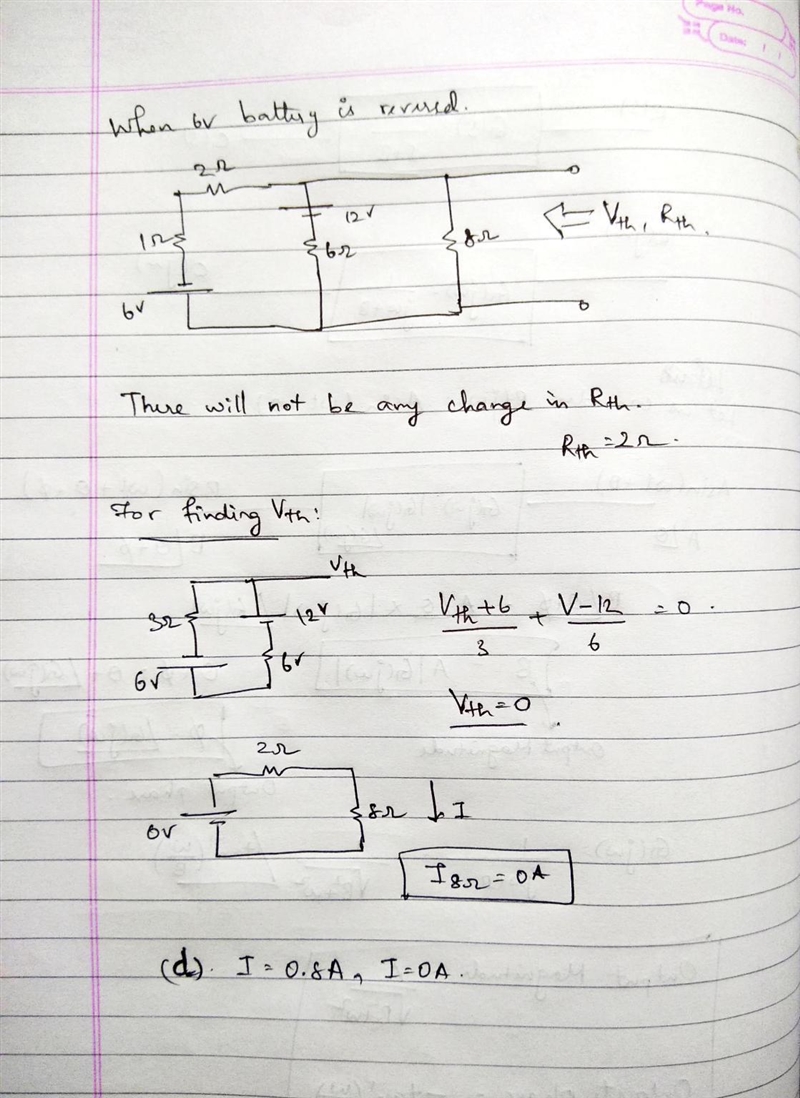 Page No.
Date: / /
When 6V battery is reversed.
2Ω
12V
1Ω
6Ω
8Ω
⇐ Vth, Rth.
6V
There will not be any change in Rth.
Rth = 2Ω.
For finding Vth:
Vth
3Ω
12V
6V
6V
(Vth + 6)/3 + (V - 12)/6 = 0.
Vth = 0.
2Ω
0V
8Ω ↓ I
I8Ω = 0A
(d). I = 0.8A, I = 0A.